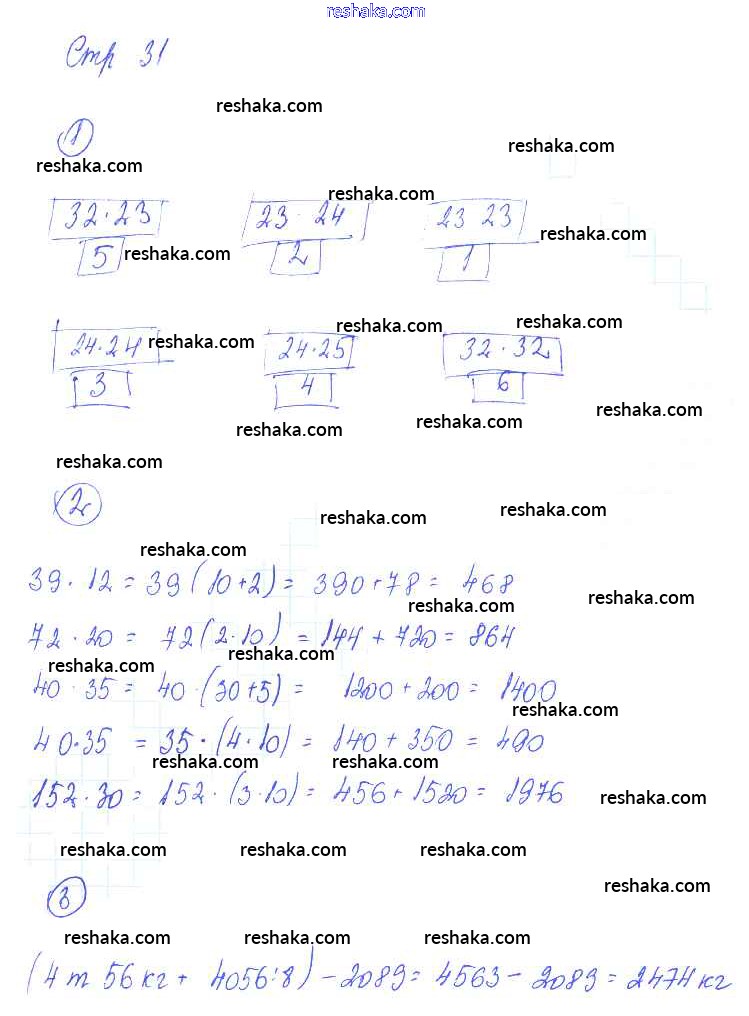 reshaka.com
Стр 31
reshaka.com
1
reshaka.com
reshaka.com
reshaka.com
32·23 23·24 23 23
reshaka.com
5 reshaka.com 2 1
reshaka.com
reshaka.com
24·24 reshaka.com 24·25 32·32
3 4 6
reshaka.com
reshaka.com
reshaka.com
reshaka.com
2
reshaka.com
reshaka.com
reshaka.com
39·12 = 39(10+2) = 390+78 = 468
reshaka.com
reshaka.com
72·20 = 72(2·10) = 144+720 = 864
reshaka.com
reshaka.com
40·35 = 40·(30+5) = 1200+200 = 1400
reshaka.com
40·35 = 35·(4·10) = 140+350 = 490
reshaka.com reshaka.com
152·30 = 152·(3·10) = 456+1520 = 1976
reshaka.com
reshaka.com reshaka.com reshaka.com
reshaka.com
3
reshaka.com reshaka.com reshaka.com
(4 т 56 кг + 4056:8) - 2089 = 4563 - 2089 = 2474 кг